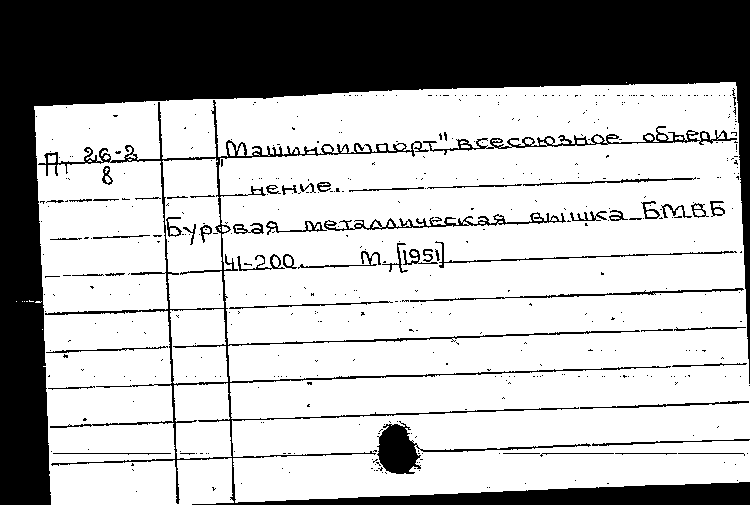 Пт 26-2
8
„Машиноимпорт", всесоюзное объеди-
нение.
Буровая металлическая вышка БМВБ
41-200. М., [1951]